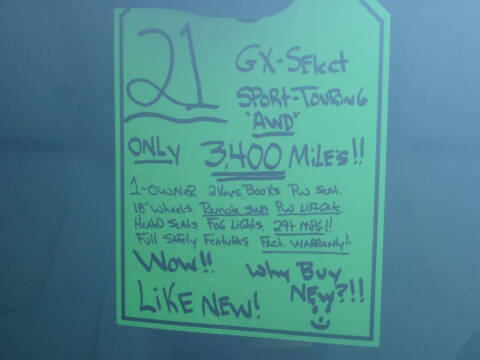 21
GX-SElect
SPORT-TOURING
"AWD"
ONLY 3,400 MiLES!!
1-OWNER 2 Keys, Books. Pw Seat.
18" WheelS. Remote Start Pw LiFTGate.
HEateD SEatS, FOG LiGHTS, 29+ MPG!!
Full SAFEty FEATURES, Fact. WARRANTY!
WOW!!
Why Buy
NEW?!!
LiKE NEW!